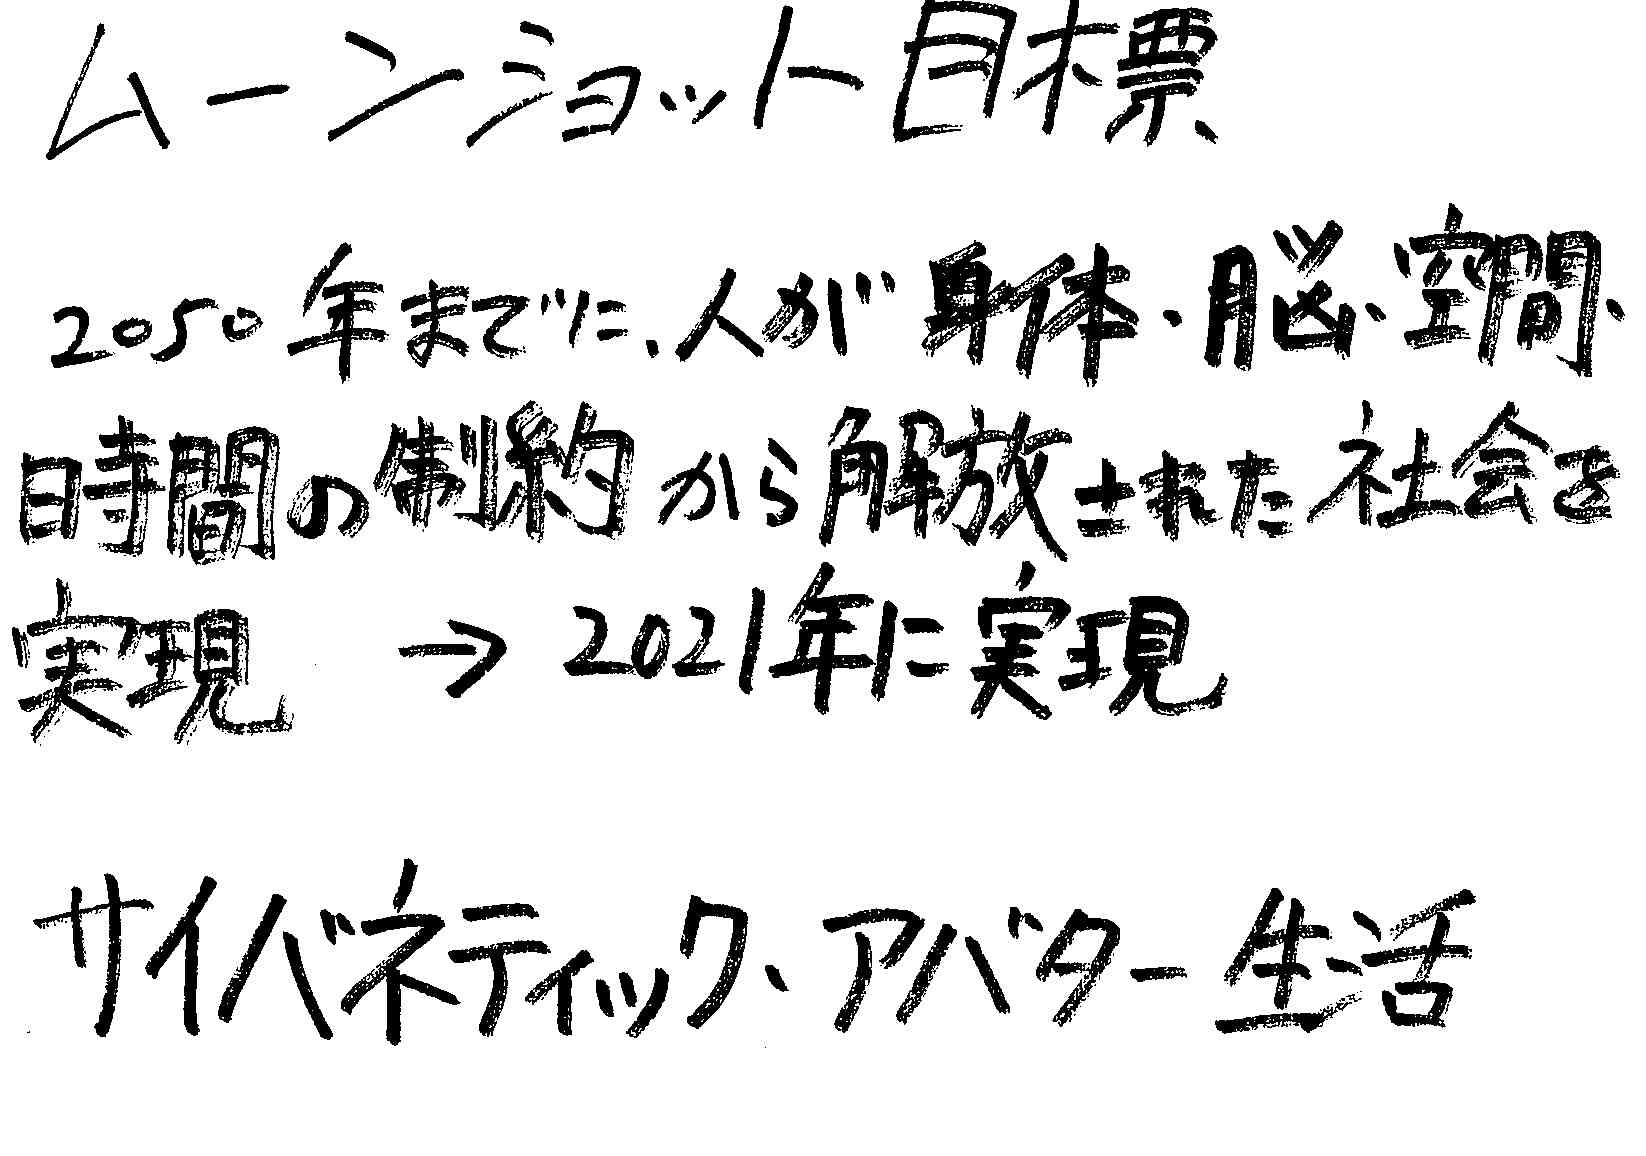 ムーンショット目標
2050年までに、人が身体・脳・空間・
時間の制約から解放された社会を
実現 → 2021年に実現
サイバネティック・アバター生活